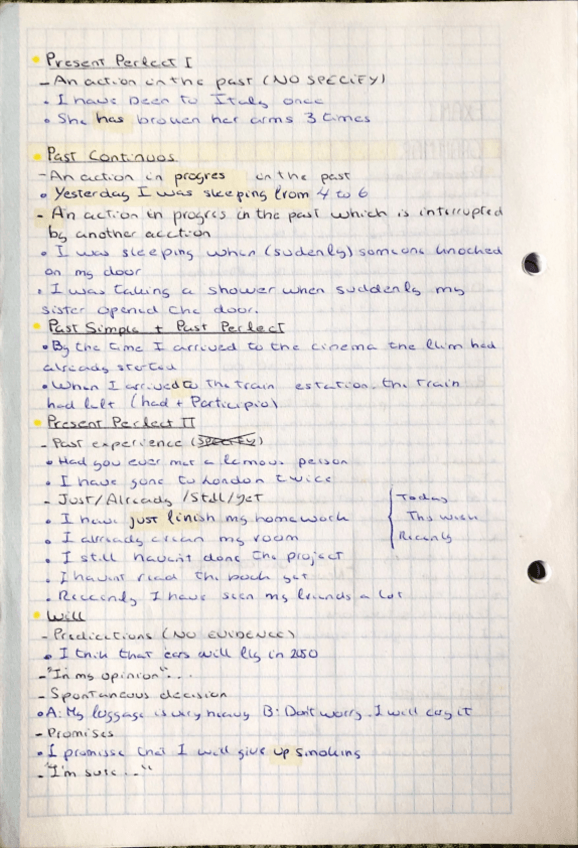 Present Perfect I
- An action in the past (NO SPECIFY)
• I have been to Italy once
• She has broken her arms 3 times
Past Continuos
- An action in progres in the past
• Yesterday I was sleeping from 4 to 6
- An action in progres in the past which is interrupted
by another acction
• I was sleeping when (sudenly) someone knoched
on my door
• I was taking a shower when suddenly my
sister opened the door.
Past Simple + Past Perfect
• By the time I arrived to the cinema the film had
already started
• When I arrived to the train estation. the train
had left (had + Participio)
Present Perfect II
- Past experience (SPECIFY)
• Had you ever met a famous person
• I have gone to London twice
- Just/Already/Still/yet
Today
• I have just finish my homework
This wekh
• I already clean my room
Recenly
• I still havent done the project
• I havent read the book yet
• Receenly I have seen my friends a lot
Will
- Predications (NO EVIDENCE)
• I thik that cars will fly in 2050
- "In my opinion"...
- Spontaneous decision
• A: My luggage is very heavy B: Dont worry. I will cary it
- Promises
• I promisse that I will give up smoking
- "I'm sure..."